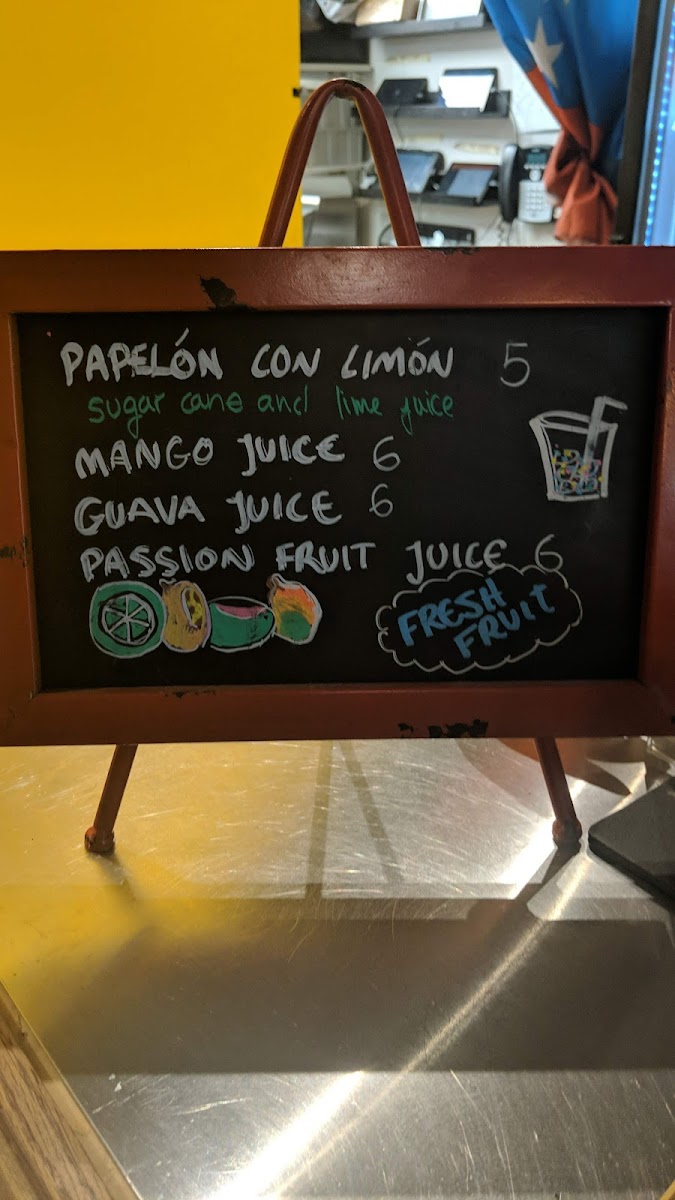 PAPELÓN CON LIMÓN 5
sugar cane and lime juice
MANGO JUICE 6
GUAVA JUICE 6
PASSION FRUIT JUICE 6
FRESH
FRUIT